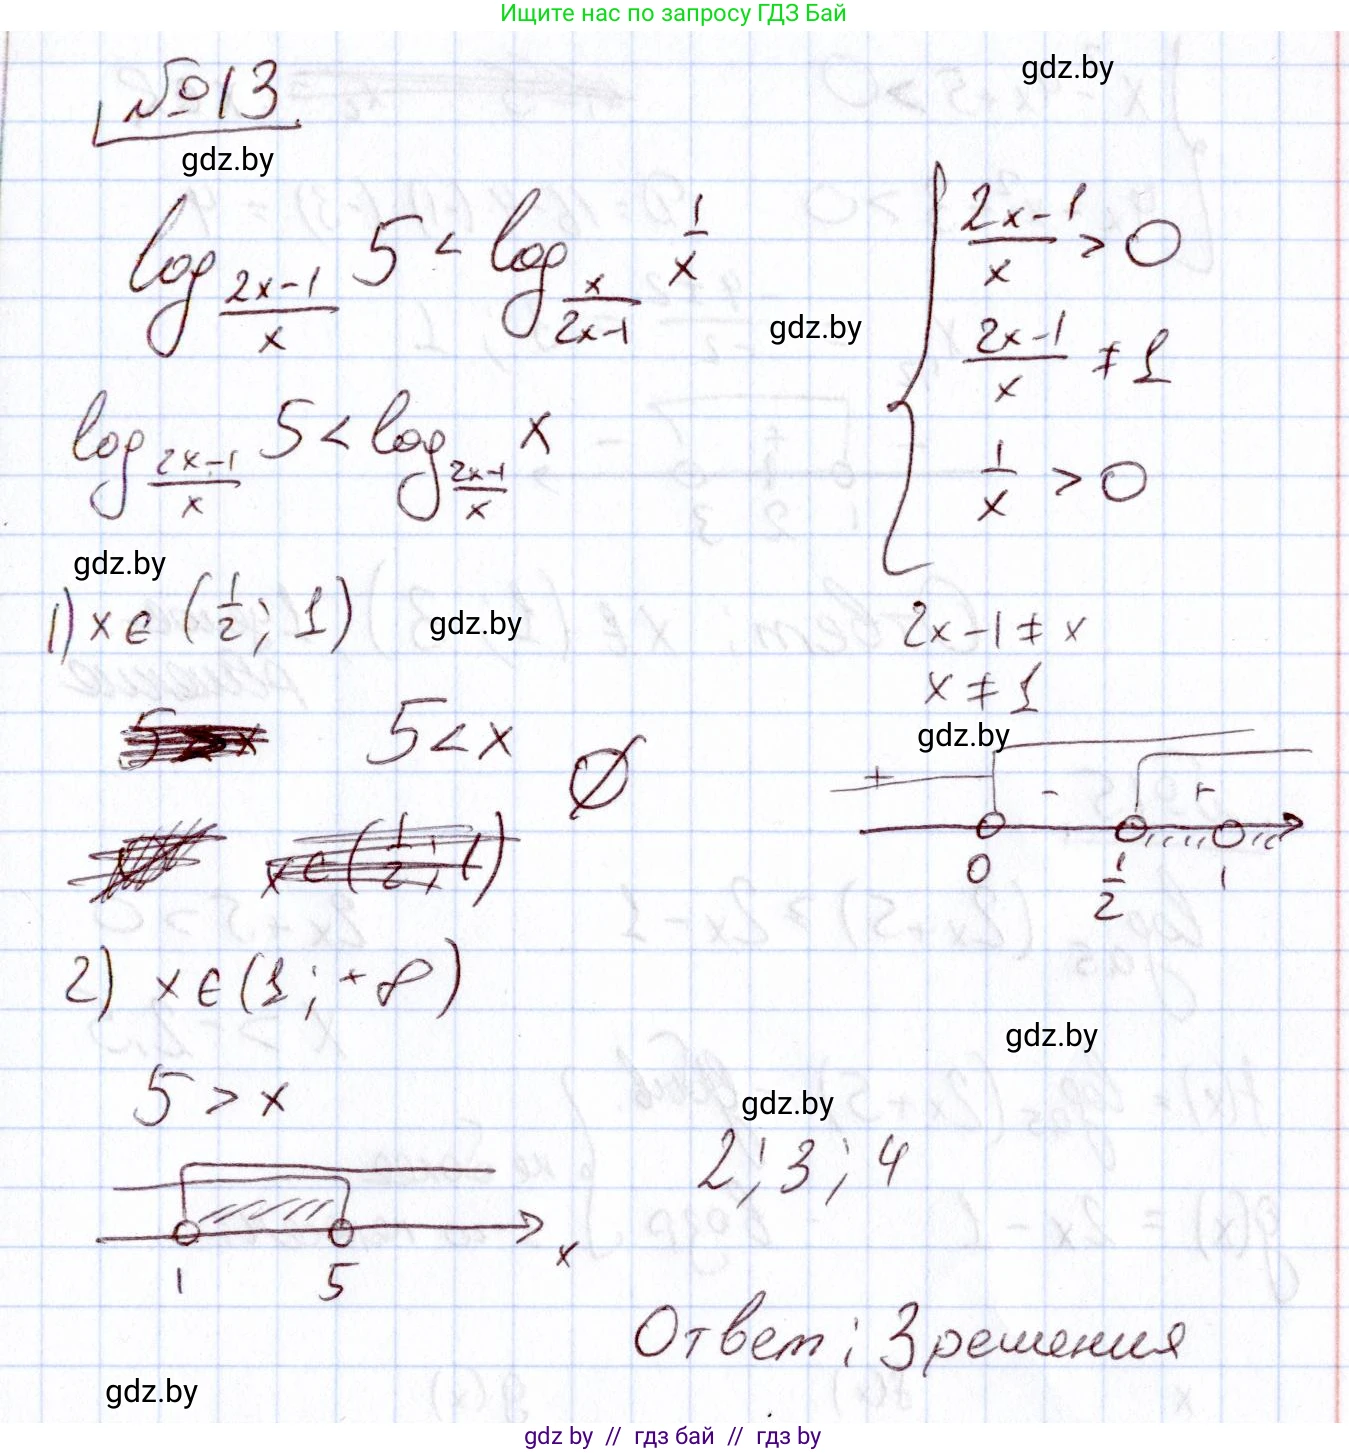 Ищите нас по запросу ГДЗ Бай
№13
gdz.by
gdz.by
log_{(2x-1)/x} 5 < log_{x/(2x-1)} 1/x
gdz.by
log_{(2x-1)/x} 5 < log_{(2x-1)/x} x
{ (2x-1)/x > 0
(2x-1)/x ≠ 1
1/x > 0
gdz.by
1) x ∈ (1/2; 1)
gdz.by
2x-1 ≠ x
x ≠ 1
gdz.by
5 < x ∅
+ - +
0 1/2 1
2) x ∈ (1; +∞)
gdz.by
5 > x
gdz.by
2; 3; 4
1 5 x
Ответ: 3 решения
gdz.by
gdz by // гдз бай // гдз by